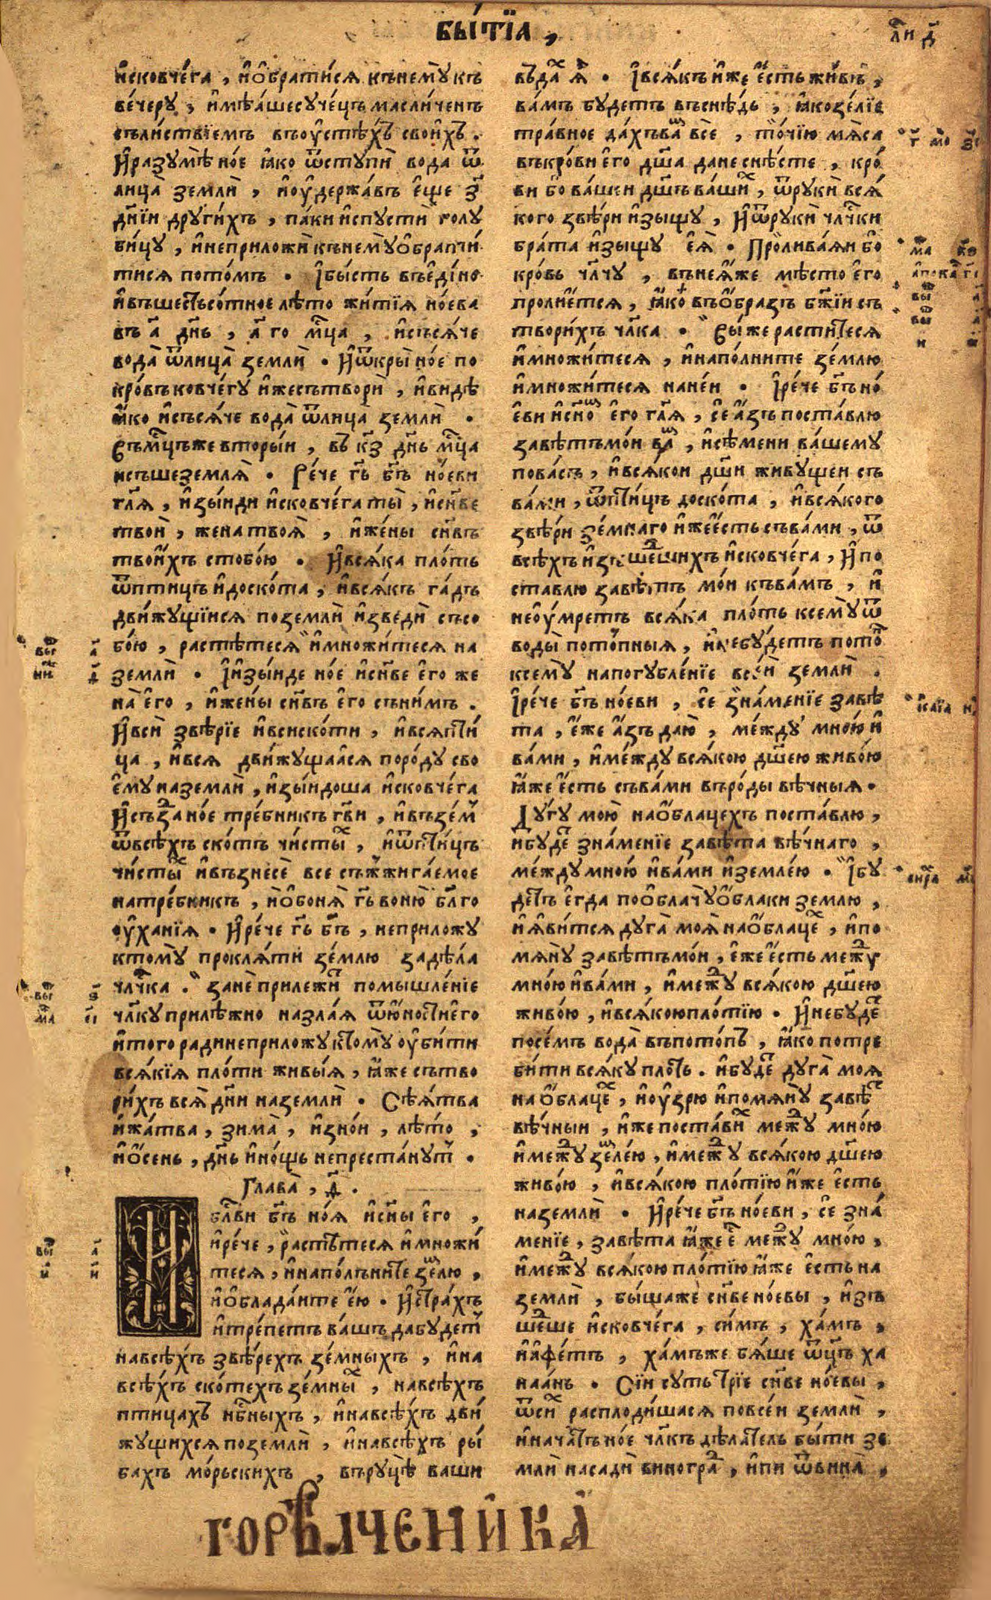 бы́тїа,
ли д҃
и҆сковче́га, и҆ѡ҆брати́ся къ немꙋ̀ къ
ве́черꙋ, и҆мѣ́ашесꙋче́цъ масли́ченъ
съ ли́ствїемъ въ оу҆стѣ́хъ свои́хъ.
И҆ разꙋмѣ̀ но́е ꙗ҆́ко ѿстꙋпѝ вода̀ ѿ
лица̀ землѝ, и҆ оу҆держа́въ є҆щѐ з҃
дні́и дрꙋги́хъ, па́ки и҆спꙋстѝ голꙋ
би́цꙋ, и҆ не приложѝ къ немꙋ̀ ѡ҆брати́
тися пото́мъ. І҆ бы́сть въ є҆ди́но
и҆ въ шестьсо́тное лѣ́то житїѧ̀ но́ева
въ а҃ д҃нь, а҃ го м҃ца, и҆съся́че
вода̀ ѿ лица̀ землѝ. И҆ ѿкры̀ но́е по
кро́въ ковче́гꙋ и҆́же сътворѝ, и҆ ви́дѣ
ꙗ҆́ко и҆съся́че вода̀ ѿ лица̀ землѝ.
Въ м҃цъ же вторы́и, въ к҃з д҃нь м҃ца
и҆съше земля̀. Рече г҃ь б҃ъ но́еви
гл҃я, и҆зы́иди и҆сковче́га ты̀, и҆ с҃нве
твоѝ, жена̀ твоя̀, и҆ жены̀ с҃нвъ
твои́хъ с тобо́ю. И҆ вся́ка пло́ть
ѿ пти́цъ и҆ до ско́та, и҆ вся́къ га́дъ
дви́жꙋщїися по землѝ и҆зведѝ съ со
бо́ю, расти́теся и҆ мно́житеся на
землѝ. І҆ и҆зы́иде но́е и҆ с҃нве є҆го̀ же
на̀ є҆го̀, и҆ жены̀ с҃нвъ є҆го̀ съ ни́мъ.
И҆ всѝ звѣ́рїе и҆ всѝ ско́ти, и҆ вся̀ пти́
ца, и҆ вся̀ дви́жꙋщаяся по ро́дꙋ сво
є҆мꙋ̀ на землѝ, и҆зы́идоша и҆сковче́га
И҆ създа̀ но́е тре́бникъ г҃ви, и҆ взе́м
ѿ всѣ́хъ ско́тъ чи́стых, и҆ ѿ пти́цъ
чи́стых и҆ възнесѐ все съжжига́емое
на тре́бникъ, и҆ ѡ҆боня̀ г҃ь воню̀ бл҃го
оу҆ха́нїя. И҆ рече г҃ь б҃ъ, не приложꙋ̀
ктомꙋ̀ прокля́ти зе́млю за дѣ́ла
чл҃ка. занѐ прилежи́т помышле́нїе
чл҃кꙋ прилѣ́жно на зла́я ѿ ю́ности є҆го̀
и҆ того̀ ради не приложꙋ̀ ктомꙋ̀ оу҆би́ти
вся́кїя пло́ти живы́я, ꙗ҆́же сътво
ри́хъ вся̀ днѝ на землѝ. Сѣ́ятва
и҆ жа́тва, зима̀, и҆ зно́и, лѣ́то,
и҆ ѡ҆́сень, д҃нь и҆ но́щь не преста́нꙋт.
Глава̀, д҃.
И҆ бл҃ви б҃ъ но́я и҆ с҃ны є҆го̀,
и҆ рече, расти́теся и҆ мно́жи
теся, и҆ напо́лъните зе́млю,
и҆ ѡ҆блада́ите є҆́ю. И҆ стра́хъ
и҆ тре́петъ ва́шъ да бꙋ́дет
на всѣ́хъ звѣ́рехъ зе́мныхъ, и҆ на
всѣ́хъ скоте́хъ зе́мных, на всѣ́хъ
пти́цахъ нб҃ныхъ, и҆ на всѣ́хъ дви́
жꙋщихся по землѝ, и҆ на всѣ́хъ ры́
бахъ мо́рьскихъ, въ рꙋ́цѣ ва́ши
въда́х я҆̀. І҆ вся́къ и҆́же є҆́сть жи́въ,
ва́мъ бꙋ́детъ въ снѣ́дь, ꙗ҆́ко зе́лїе
тра́вное да́хъ ва́м всѐ, то́чїю мя́са
въ кро́ви є҆го̀ дш҃а да не снѣ́сте, кро́
ви бо ва́шеи дш҃ъ ва́ших, ѿ рꙋкѝ вся́
кого звѣ́ри и҆зыщꙋ̀, и҆ ѿ рꙋкѝ чл҃чки
бра́та и҆зыщꙋ̀ є҆я̀. Пролива́яи бо
кро́вь чл҃чꙋ, въ нея́же мѣ́сто є҆го̀
пролїе́тся, ꙗ҆́ко въ ѡ҆́бразъ бж҃їи съ
твори́хъ чл҃ка. Вы́ же расти́теся
и҆ мно́житеся, и҆ напо́лните зе́млю
и҆ мно́житеся на не́и. І҆ рече б҃ъ но́
еви и҆ с҃ном є҆го̀ гл҃я, се а҆́зъ поставлю
завѣ́тъ мо́и ва́м, и҆ сѣ́мени ва́шемꙋ
по ва́съ, и҆ вся́кои дш҃и живꙋщеи съ
ва́ми, ѿ пти́цъ до ско́та, и҆ вся́кого
звѣ́ри зе́мнаго и҆́же є҆́сть съ ва́ми, ѿ
всѣ́хъ и҆зшедших и҆сковче́га, и҆ по
ставлю завѣ́тъ мо́и къ ва́мъ, и҆
не оу҆́мретъ вся́ка пло́ть ксемꙋ̀ ѿ
воды̀ пото́пныя, и҆ не бꙋ́детъ пото́п
ксемꙋ̀ на погꙋбле́нїе все́и землѝ.
І҆ рече б҃ъ но́еви, се зна́менїе завѣ́
та, є҆́же а҆́зъ даю̀, ме́ждꙋ мно́ю и҆
ва́ми, и҆ ме́ждꙋ вся́кою дш҃ею живо́ю
ꙗ҆́же є҆́сть съ ва́ми въ ро́ды вѣ́чныя.
Дꙋгꙋ̀ мою̀ на ѡ҆́блацехъ поставлю,
и҆ бꙋ́дет зна́менїе завѣ́та вѣ́чнаго,
ме́ждꙋ мно́ю и҆ ва́ми и҆ земле́ю. І҆ бꙋ́
детъ є҆гда̀ по ѡ҆блачꙋ̀ ѡ҆́блаки зе́млю,
и҆ я҆ви́тся дꙋга̀ моя̀ на ѡ҆́блаце, и҆ по
мянꙋ̀ завѣ́тъ мо́и, є҆́же є҆́сть межꙋ
мно́ю и҆ ва́ми, и҆ межꙋ вся́кою дш҃ею
живо́ю, и҆ вся́кою пло́тїю. И҆ не бꙋ́дет
посе́мъ вода̀ въ пото́пъ, ꙗ҆́ко потре
би́ти вся́кꙋ пло́ть. и҆ бꙋ́дет дꙋга̀ моя
на ѡ҆́блаце, и҆ оу҆зрю̀ и҆ помянꙋ̀ завѣ́т
вѣ́чныи, и҆́же поста́вих межꙋ мно́ю
и҆ межꙋ зе́лею, и҆ межꙋ вся́кою дш҃ею
живо́ю, и҆ вся́кою пло́тїю и҆́же є҆́сть
на землѝ. И҆ рече б҃ъ но́еви, се зна́
менїе, завѣ́та ꙗ҆́же є҆́ межꙋ мно́ю,
и҆ межꙋ вся́кою пло́тїю ꙗ҆́же є҆́сть на
землѝ, бы́ша же с҃нве но́евы, и҆зъ
ше́дше и҆сковче́га, си́мъ, ха́мъ,
и҆ а҆фе́тъ, ха́мъ же бя́ше ѿц҃ъ ха
наа́нь. Сїи сꙋть трїе с҃нве но́евы,
ѿ си́х расплоди́шася по все́и землѝ,
и҆ нача́тъ но́е чл҃къ дѣ́латель бы́ти зе
млѝ насадѝ виногра́д, и҆ пѝ ѿ вина̀,